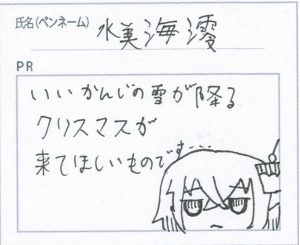 氏名(ペンネーム) 水美海澪
PR
いいかんじの雪が降る
クリスマスが
来てほしいものです…